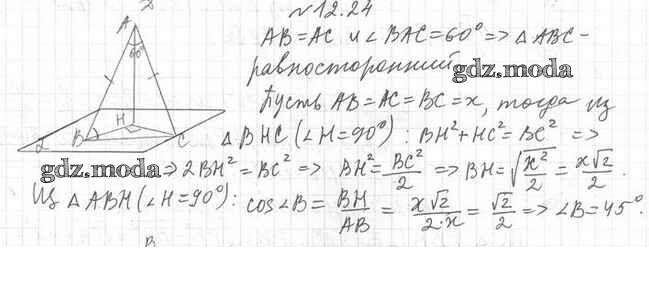 №12.24
AB=AC и ∠BAC=60° => △ABC-
равносторонний
gdz.moda
Пусть AB=AC=BC=x, тогда из
△BHC (∠H=90°): BH²+HC²=BC² =>
gdz.moda => 2BH²=BC² => BH²=BC²/2 => BH=√(x²/2)=x√2/2.
Из △ABH (∠H=90°): cos∠B=BH/AB=x√2/2·x=√2/2 => ∠B=45°.
A
60°
H
B
C
α
B